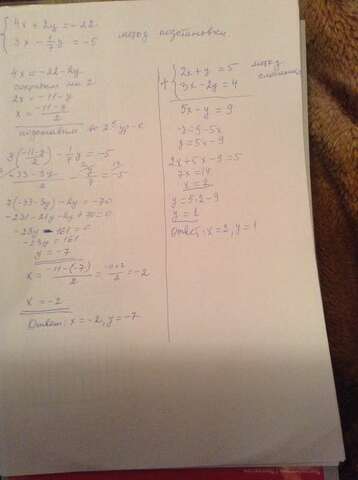 4x + 2y = -22
3x - 1/7 y = -5
метод подстановки
4x = -22 - 2y
сократим на 2
2x = -11 - y
x = (-11-y)/2
подставим во 2ое ур-е
3((-11-y)/2) - 1/7 y = -5
(-33-3y)/2 - y/7 = -5
7(-33-3y) - 2y = -70
-231 - 21y - 2y + 70 = 0
-23y - 161 = 0
-23y = 161
y = -7
x = (-11-(-7))/2 = (-11+7)/2 = -2
x = -2
Ответ: x = -2, y = -7
метод
сложения
+ 2x + y = 5
3x - 2y = 4
5x - y = 9
-y = 9 - 5x
y = 5x - 9
2x + 5x - 9 = 5
7x = 14
x = 2
y = 5·2 - 9
y = 1
Ответ: x = 2, y = 1